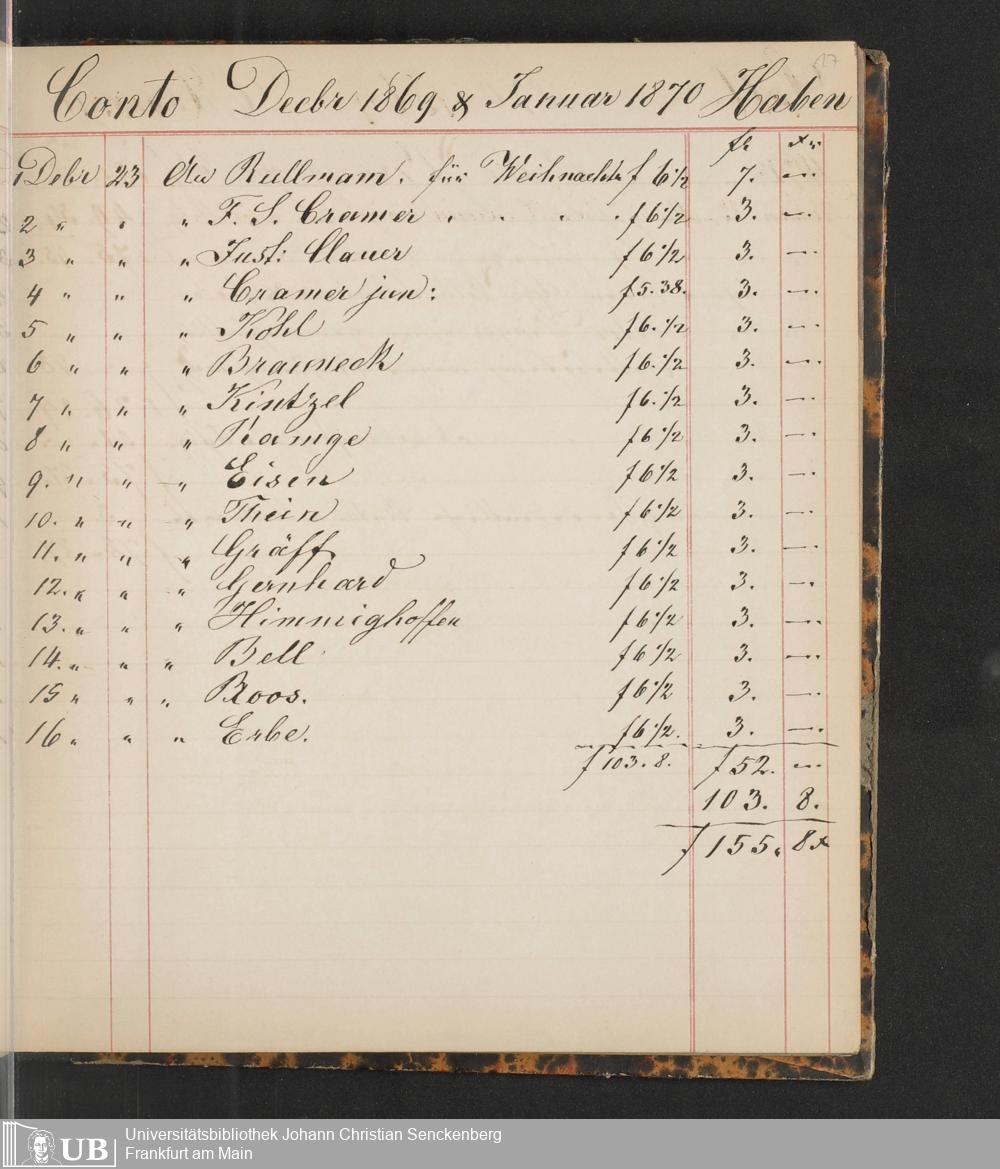 Conto Decbr 1869 & Januar 1870 Haben
fl xr
1 Decbr 23 An Rullmann. für Weihnachten f 6 1/2 7. —
2 " " " F. S. Cramer . . . . f 6 1/2 3. —
3 " " " Just: Clauer f 6 1/2 3. —
4 " " " Cramer jun: f 5.38. 3. —
5 " " " Kohl f 6. 1/2 3. —
6 " " " Brauneck f 6. 1/2 3. —
7 " " " Kintzel f 6. 1/2 3. —
8 " " " Ramge f 6 1/2 3. —
9. " " " Eisen f 6 1/2 3. —
10. " " " Thein f 6 1/2 3. —
11. " " " Gräff f 6 1/2 3. —
12. " " " Gernhard f 6 1/2 3. —
13. " " " Himmighoffen f 6 1/2 3. —
14. " " " Bell f 6 1/2 3. —
15 " " " Roos. f 6 1/2 3. —
16 " " " Erbe. f 6 1/2. 3. —
f 103. 8. f 52. —
103. 8.
f 155. 8 x
UB Universitätsbibliothek Johann Christian Senckenberg
Frankfurt am Main